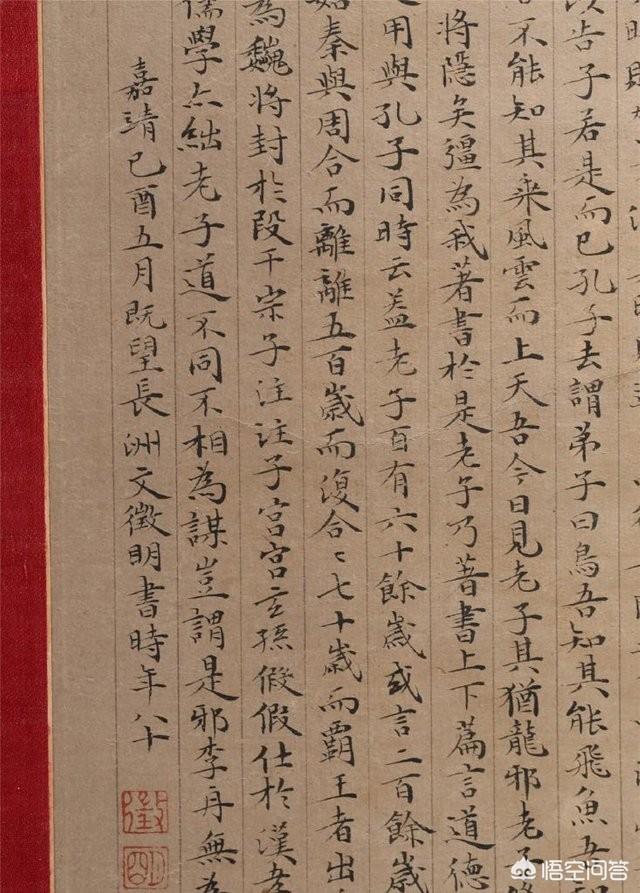 以告子若是而已孔子去謂弟子曰鳥吾知其能飛魚吾
不能知其乘風雲而上天吾今日見老子其猶龍邪老子
將隱矣彊為我著書於是老子乃著書上下篇言道德
用與孔子同時云蓋老子百有六十餘歲或言二百餘歲
始秦與周合而離離五百歲而復合〻七十歲而霸王者出
為魏將封於段干宗子注注子宮宮玄孫假假仕於漢孝
儒學亦絀老子道不同不相為謀豈謂是邪李耳無為
嘉靖己酉五月既望長洲文徵明書時年八十
徵
明
悟空问答